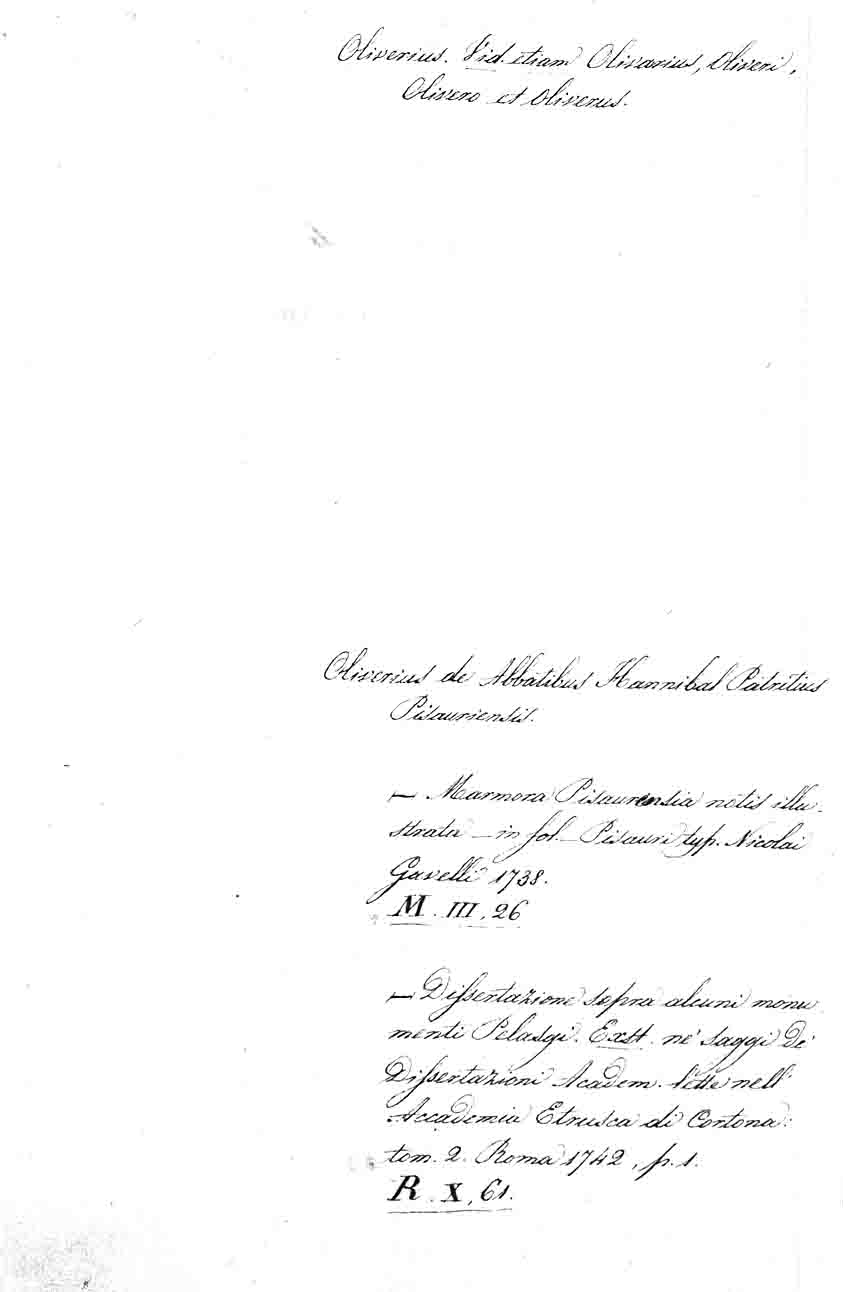 Oliverius. Vid. etiam Olivarius, Oliveri,
Olivero et Oliverus.
Oliverius de Abbatibus Hannibal Patritius
Pisauriensis.
— Marmora Pisaurensia notis illu-
strata — in fol. — Pisauri typ. Nicolai
Gavelli 1738.
M. III. 26
— Dissertazione sopra alcuni monu
menti Pelasgi. Exst. ne' saggi de'
Dissertazioni Academ. lette nell'
Accademia Etrusca di Cortona:
tom. 2. Roma 1742, p. 1.
R. X, 61.